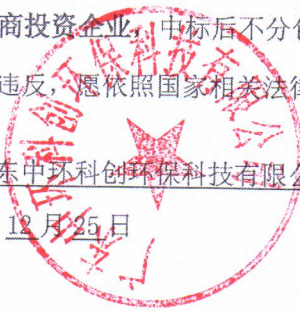 商投资企业，中标后不分包
违反，愿依照国家相关法律
东中环科创环保科技有限公
12月25日
广东中环科创环保科技有限公司